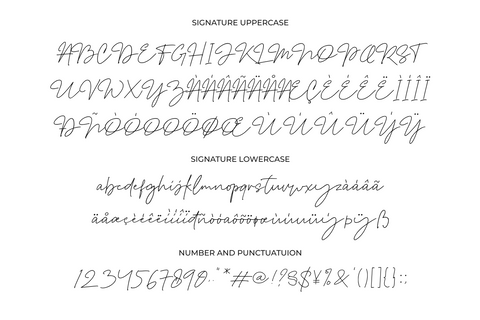 SIGNATURE UPPERCASE
ABCDEFGHIJKLMNOPQRST
UVWXYZÀÁÂÃÄÅÆÇÈÉÊËÌÍÎÏ
ÐÑÒÓÔÕÖØŒÙÚÛÜÝŸ
SIGNATURE LOWERCASE
abcdefghijklmnopqrstuvwxyzàáâã
äåæçèéêëìíîïðñòóôõöøœùúûüýþÿß
NUMBER AND PUNCTUATUION
1234567890..°*#@!?§$¥%&'()[]{}:;